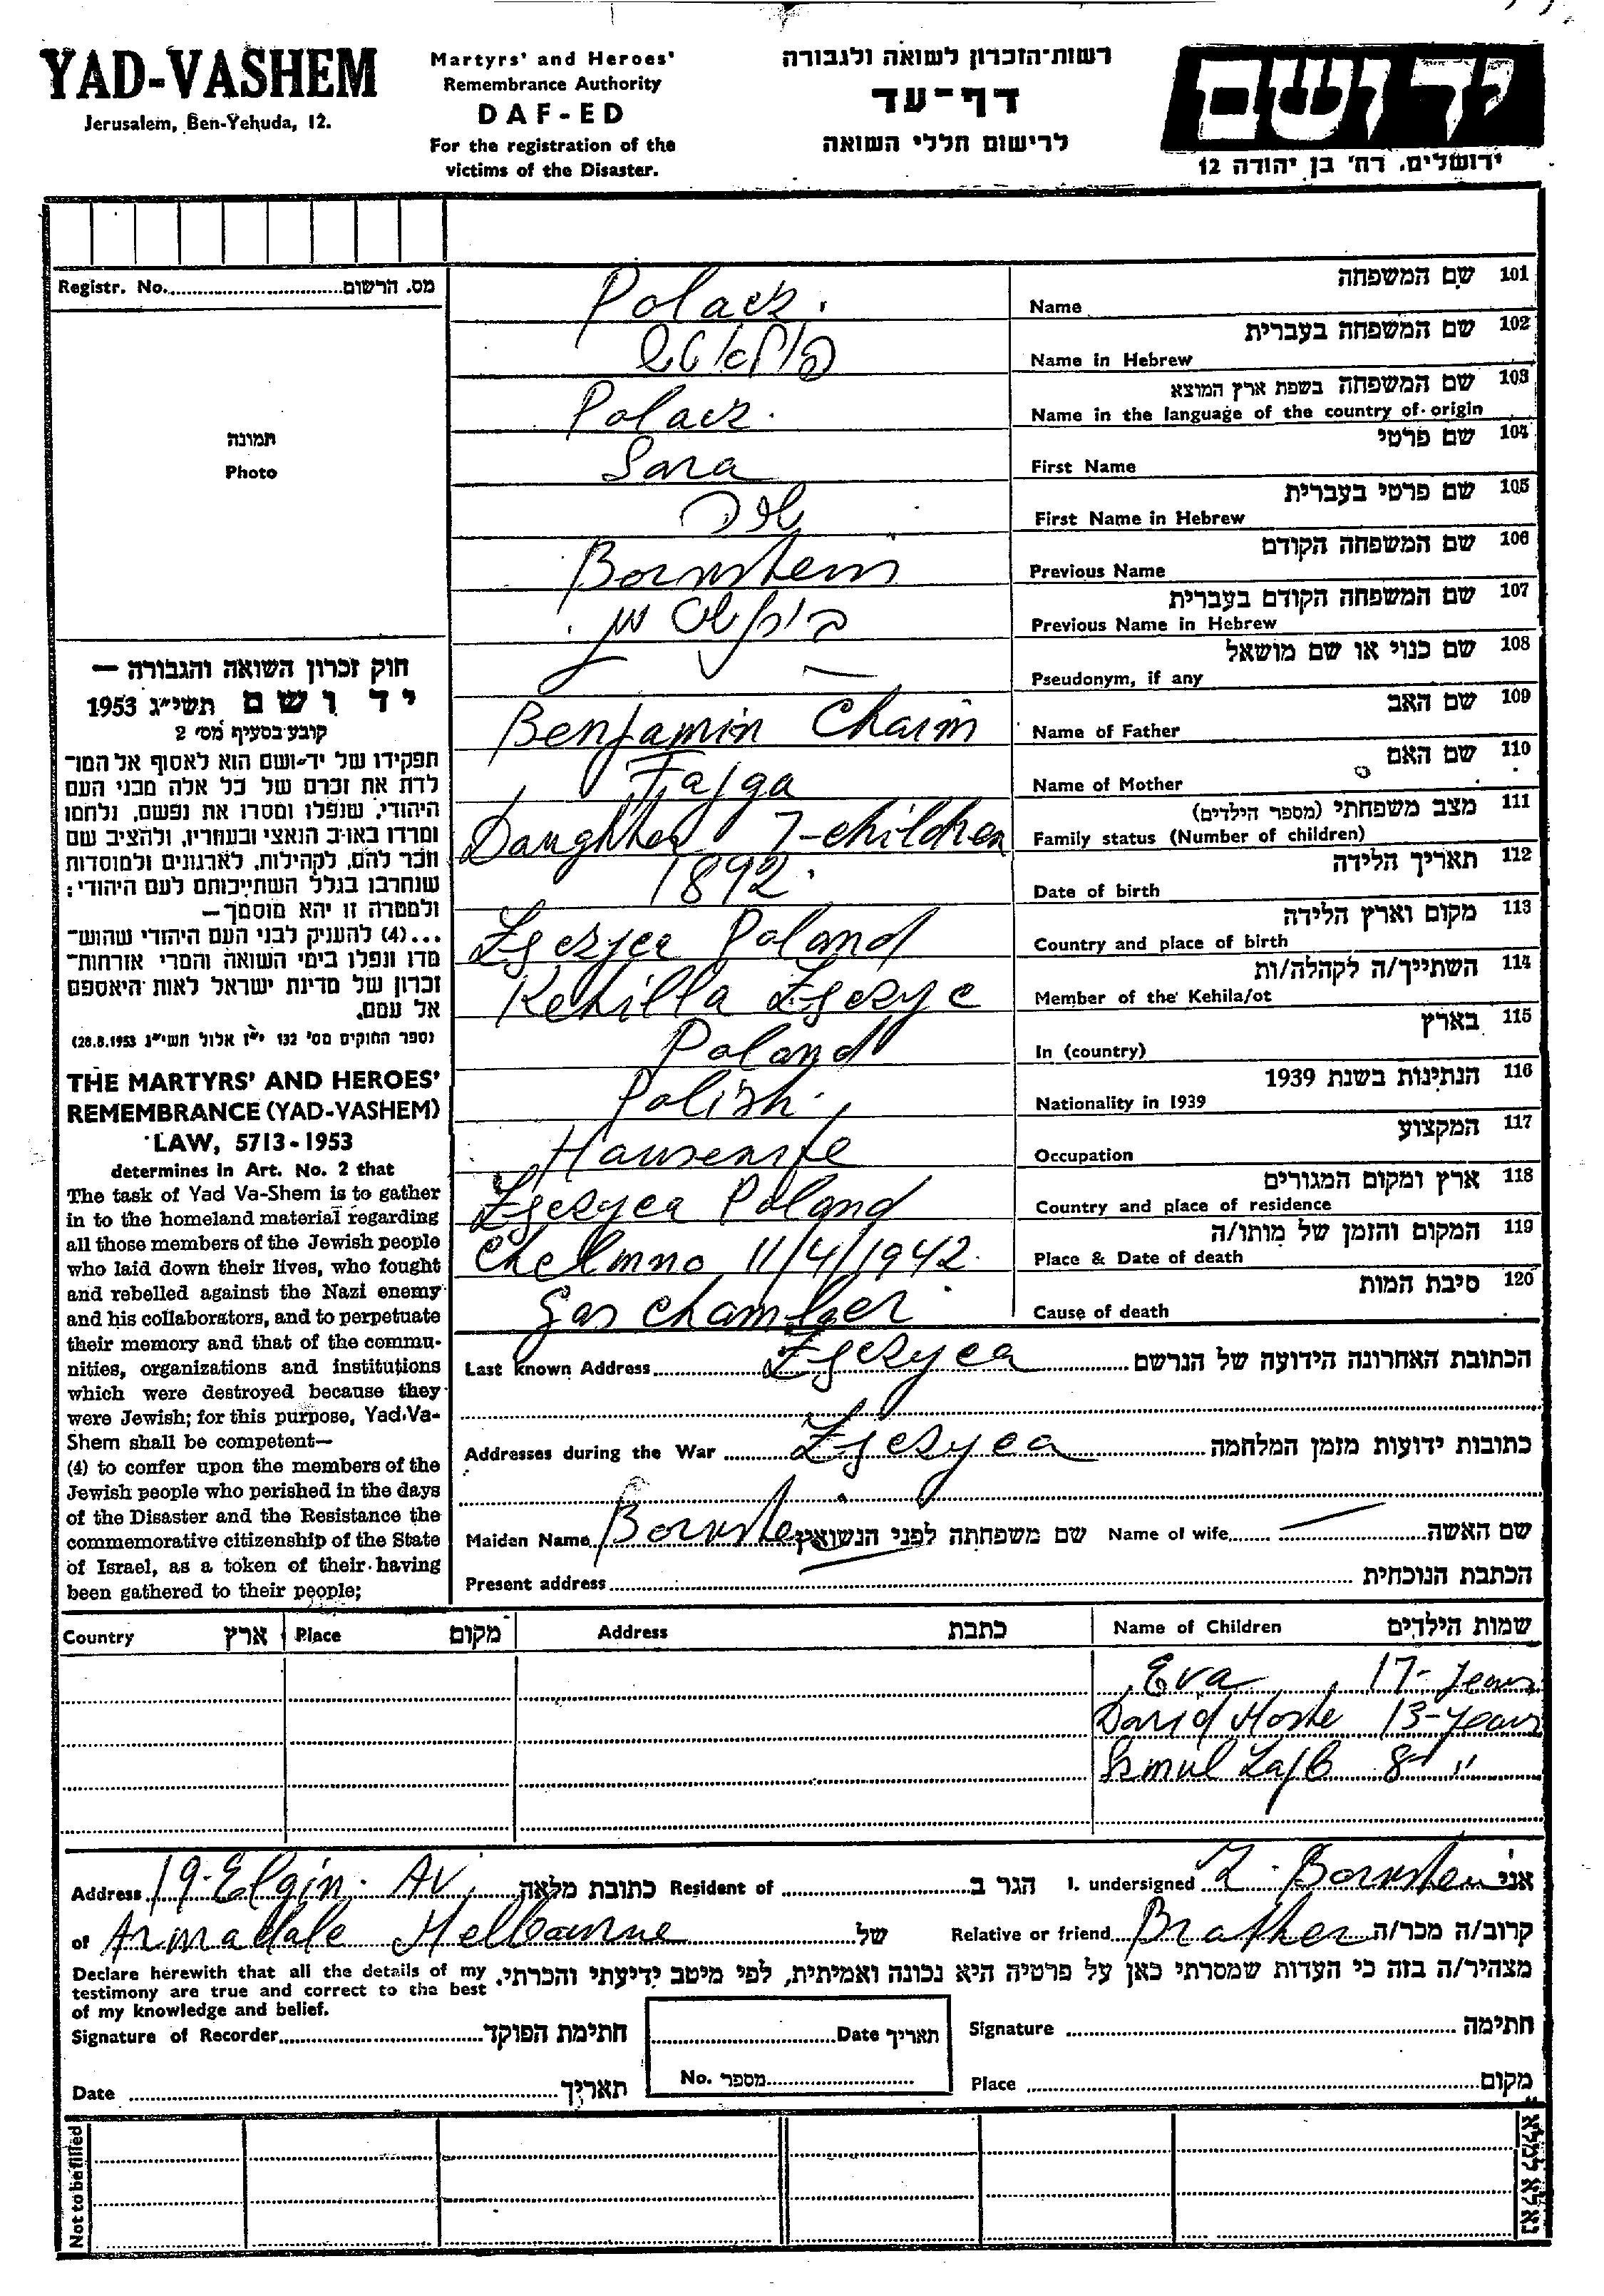 YAD-VASHEM
Jerusalem, Ben-Yehuda, 12.
Martyrs' and Heroes'
Remembrance Authority
DAF-ED
For the registration of the
victims of the Disaster.
רשות־הזכרון לשואה ולגבורה
דף־עד
לרישום חללי השואה
יד ושם
ירושלים, רח' בן יהודה 12
Registr. No. מס. הרשום
תמונה
Photo
חוק זכרון השואה והגבורה —
יד ושם תשי״ג 1953
קובע בסעיף מס׳ 2
תפקידו של יד־ושם הוא לאסוף אל המו־
לדת את זכרם של כל אלה מבני העם
היהודי, שנפלו ומסרו את נפשם, נלחמו
ומרדו באויב הנאצי ובעוזריו, ולהציב שם
וזכר להם, לקהילות, לארגונים ולמוסדות
שנחרבו בגלל השתייכותם לעם היהודי:
ולמטרה זו יהא מוסמך—
...(4) להעניק לבני העם היהודי שהוש־
מדו ונפלו בימי השואה והמרי אזרחות־
זכרון של מדינת ישראל לאות היאספם
אל עמם.
(ספר החוקים מס׳ 132 י״ז אלול תשי״ג 28.8.1953)
THE MARTYRS' AND HEROES'
REMEMBRANCE (YAD-VASHEM)
LAW, 5713-1953
determines in Art. No. 2 that
The task of Yad Va-Shem is to gather
in to the homeland material regarding
all those members of the Jewish people
who laid down their lives, who fought
and rebelled against the Nazi enemy
and his collaborators, and to perpetuate
their memory and that of the commu-
nities, organizations and institutions
which were destroyed because they
were Jewish; for this purpose, Yad-Va-
Shem shall be competent—
(4) to confer upon the members of the
Jewish people who perished in the days
of the Disaster and the Resistance the
commemorative citizenship of the State
of Israel, as a token of their having
been gathered to their people;
Polacz. Name שם המשפחה 101
Name in Hebrew שם המשפחה בעברית 102
Polacz. Name in the language of the country of origin שם המשפחה בשפת ארץ המוצא 103
Sara First Name שם פרטי 104
שרה First Name in Hebrew שם פרטי בעברית 105
Bornstein Previous Name שם המשפחה הקודם 106
בורנשטיין Previous Name in Hebrew שם המשפחה הקודם בעברית 107
Pseudonym, if any שם כנוי או שם מושאל 108
Benjamin Chaim Name of Father שם האב 109
Fajga Name of Mother שם האם 110
Daughter 7-children Family status (Number of children) מצב משפחתי (מספר הילדים) 111
1892. Date of birth תאריך הלידה 112
Zgezyca Poland Country and place of birth מקום וארץ הלידה 113
Kehilla Zgezyc Member of the Kehila/ot השתייך/ה לקהלה/ות 114
Poland In (country) בארץ 115
Polish. Nationality in 1939 הנתינות בשנת 1939 116
Housewife Occupation המקצוע 117
Zgezyca Poland Country and place of residence ארץ ומקום המגורים 118
Chelmno 11/4/1942. Place & Date of death המקום והזמן של מותו/ה 119
Gas chamber Cause of death סיבת המות 120
Last known Address Zgezyca הכתובת האחרונה הידועה של הנרשם
Addresses during the War Zgezyca כתובות ידועות מזמן המלחמה
Maiden Name Bornstein שם משפחתה לפני הנשואין Name of wife שם האשה
Present address הכתבת הנוכחית
Country ארץ Place מקום Address כתבת Name of Children שמות הילדים
Eva 17-years
David Moshe 13-years
Szmul Lajb 8 "
Address 19-Elgin. Av. כתובת מלאה Resident of הגר ב I. undersigned Z. Bornstein אני
of Armadale Melbourne של Relative or friend Brother קרוב/ה מכר/ה
Declare herewith that all the details of my
testimony are true and correct to the best
of my knowledge and belief.
מצהיר/ה בזה כי העדות שמסרתי כאן על פרטיה היא נכונה ואמיתית, לפי מיטב ידיעתי והכרתי.
Signature of Recorder חתימת הפוקד Date תאריך Signature חתימה
Date תאריך No. מספר Place מקום
Not to be filled
נא לא למלא